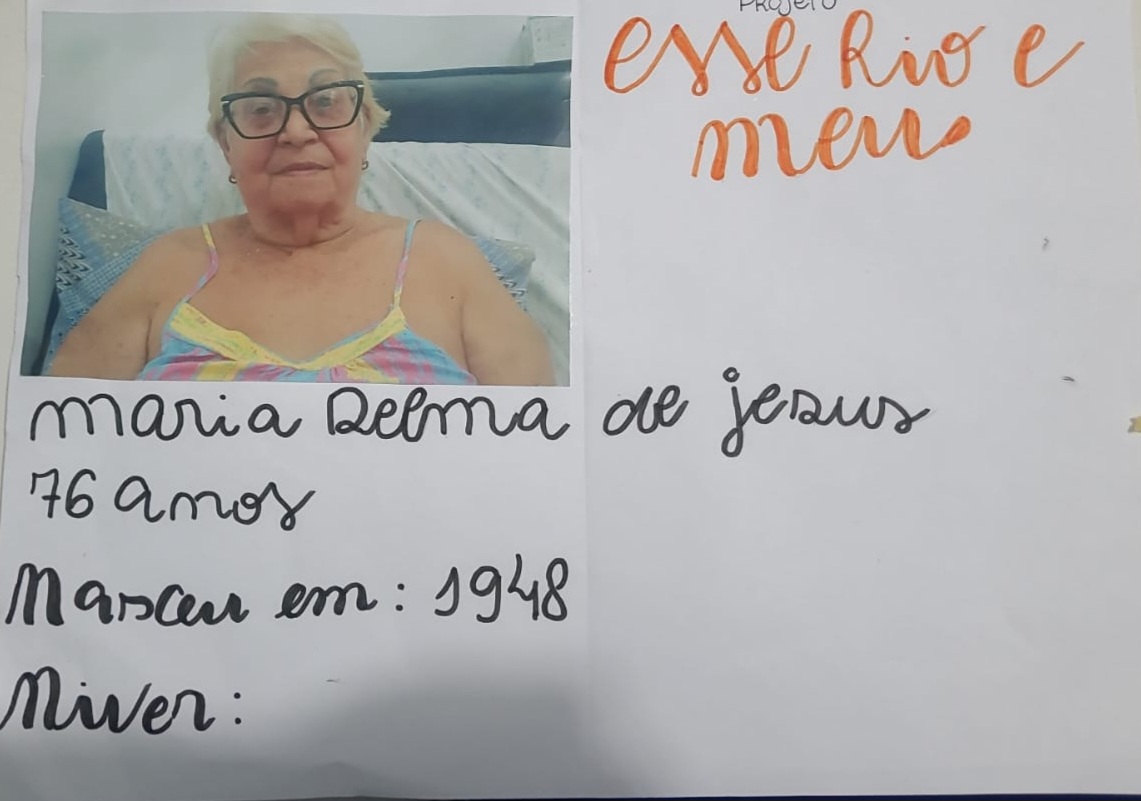 PROJETO
esse Rio e
meu
maria Delma de jesus
76 anos
Nasceu em: 1948
Niver: